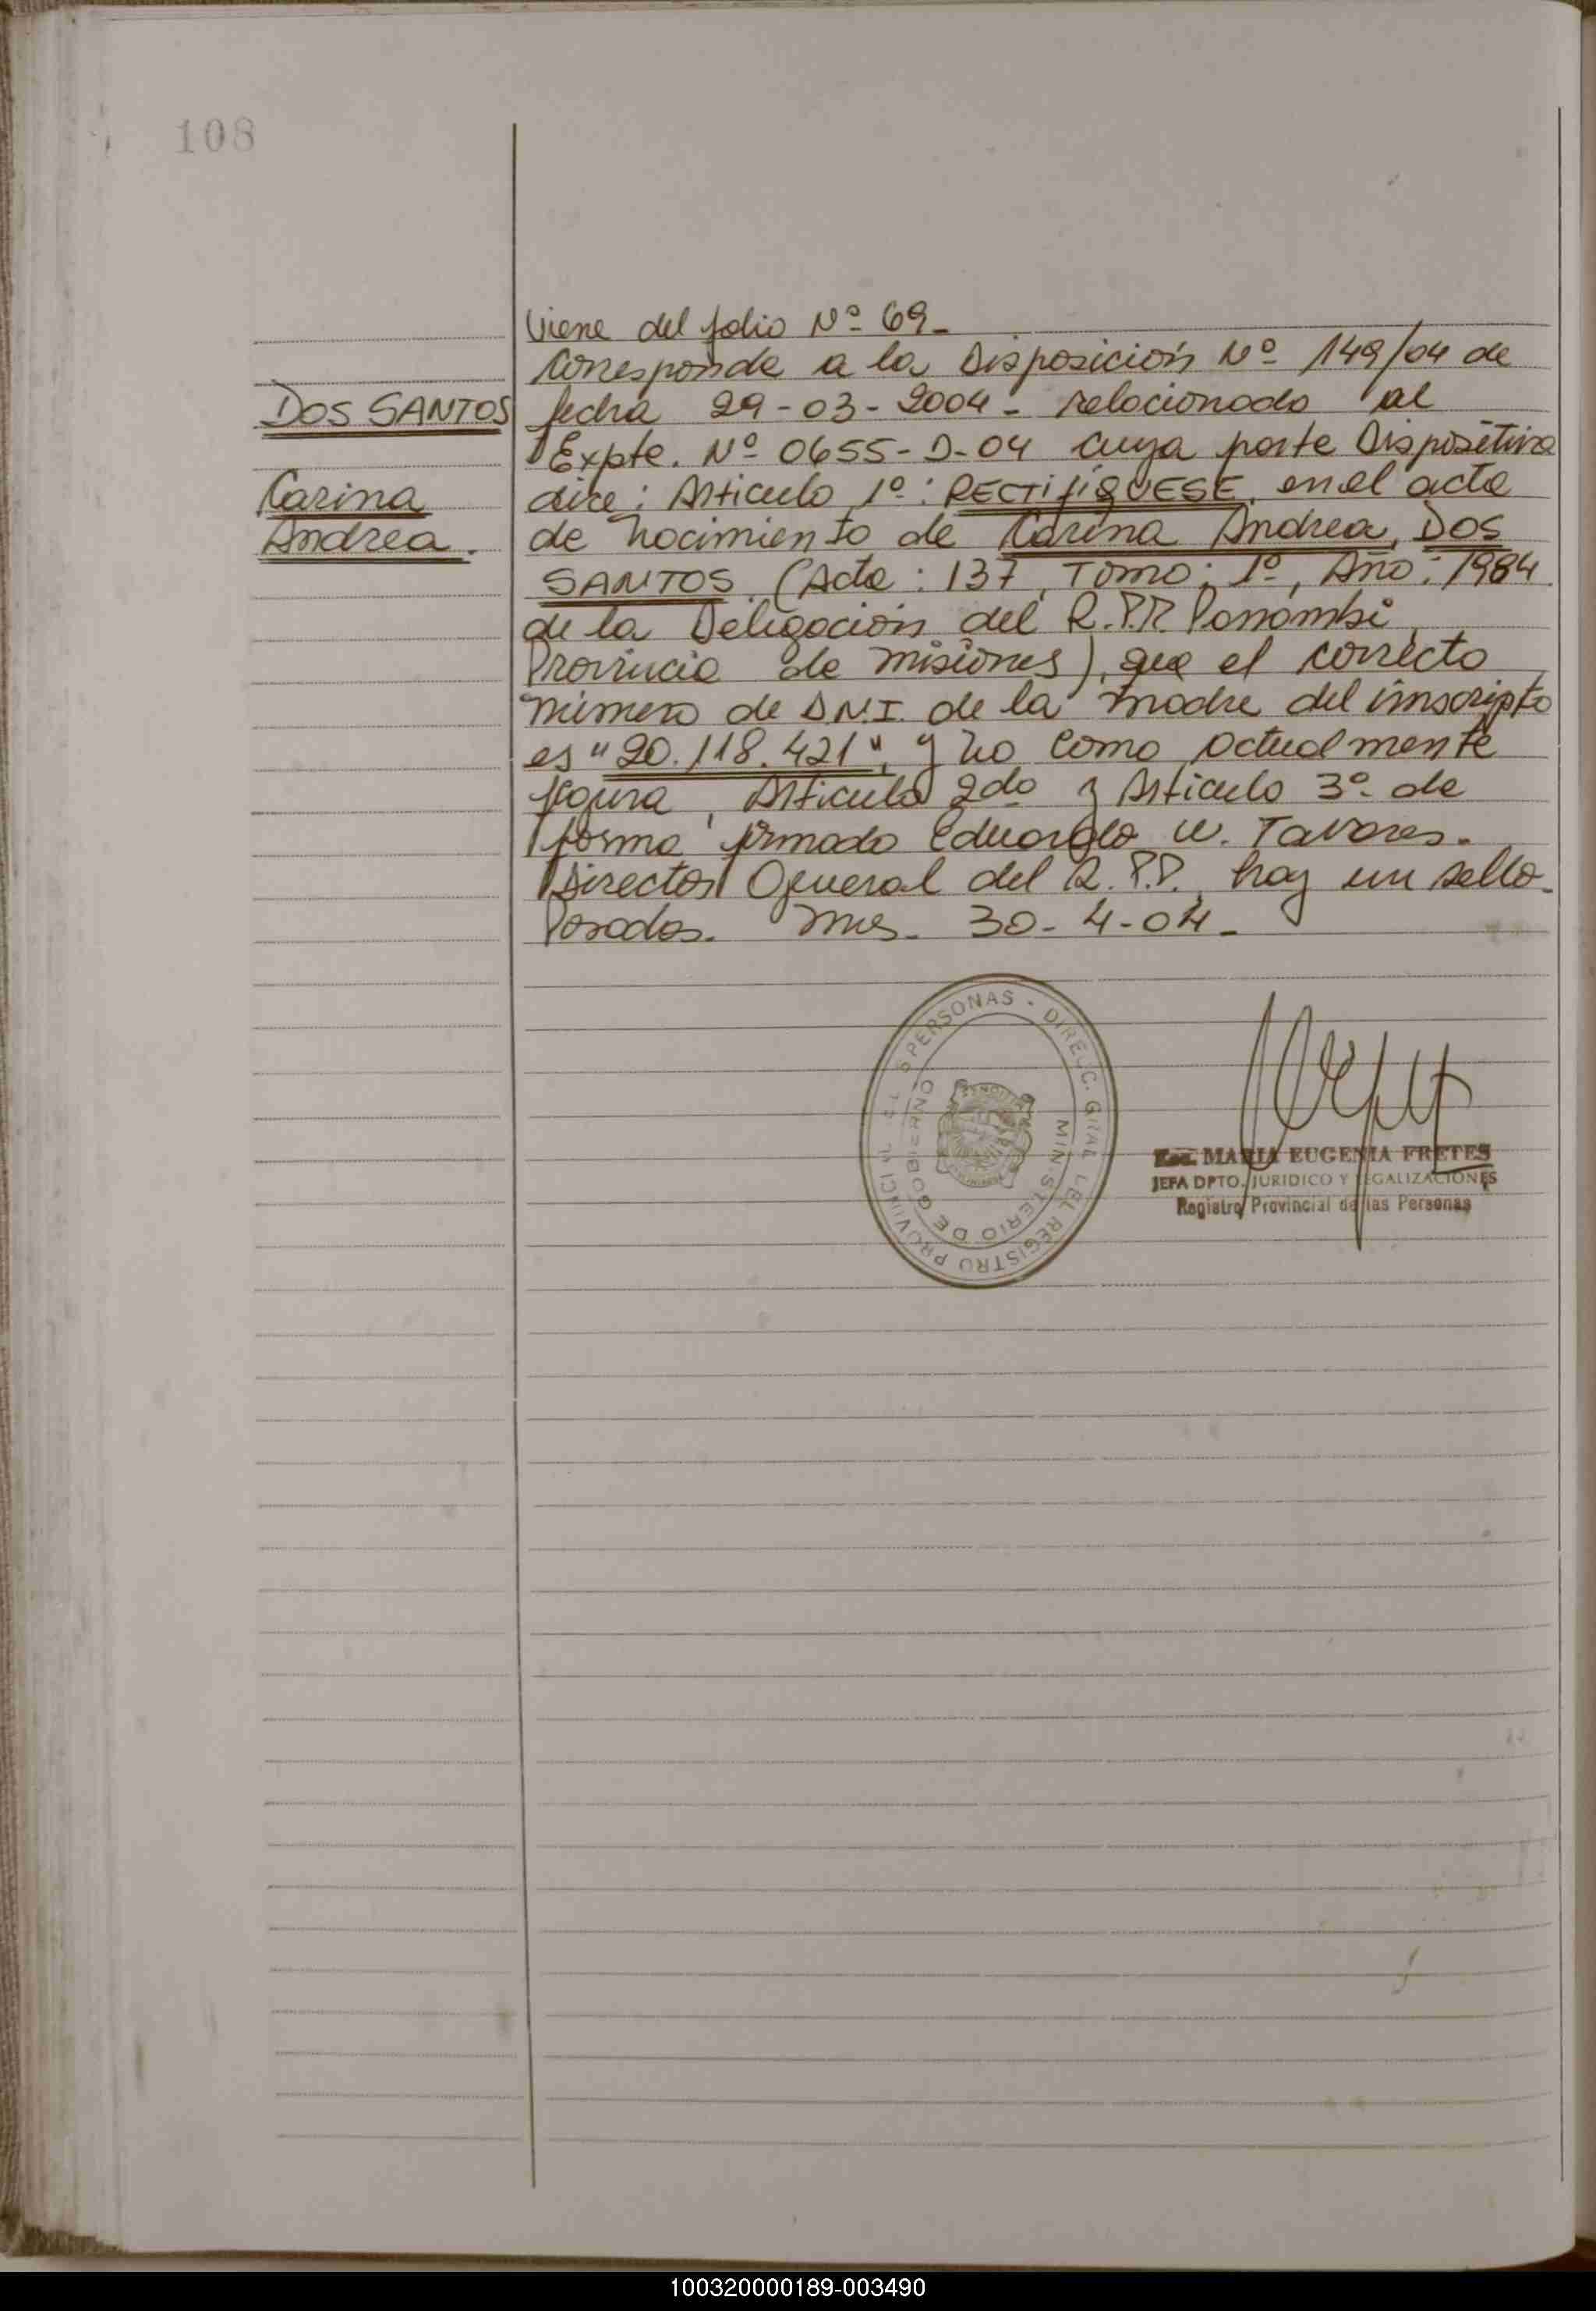 108
Viene del folio Nº 69_
Corresponde a la Disposición Nº 149/04 de
DOS SANTOS
fecha 29-03-2004_ relacionado al
Expte. Nº 0655-D-04 cuya parte Dispositiva
Carina
dice: Articulo 1º: RECTIFIQUESE, en el acta
Andrea.
de nacimiento de Carina Andrea, DOS
SANTOS, (Acta: 137, Tomo: 1º, Año: 1984
de la Delegación del R.P.P. Panambi,
Provincia de Misiones), que el correcto
número de D.N.I. de la madre del inscripto
es "20.118.421", y no como actualmente
figura, Articulo 2do y Articulo 3º de
forma firmado Eduardo W. Tavares.
Director General del R.P.P. hay un sello_
Posadas. Mns_ 30-4-04_
PERSONAS - DIRECC. GRAL DEL REGISTRO PROVINCIAL
MINISTERIO DE GOBIERNO
MARIA EUGENIA FRETES
JEFA DPTO. JURIDICO Y LEGALIZACIONES
Registro Provincial de las Personas
100320000189-003490